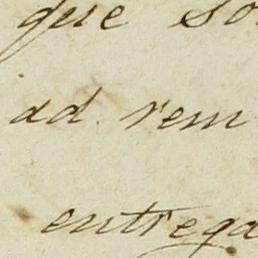 que so
ad rem
entrega